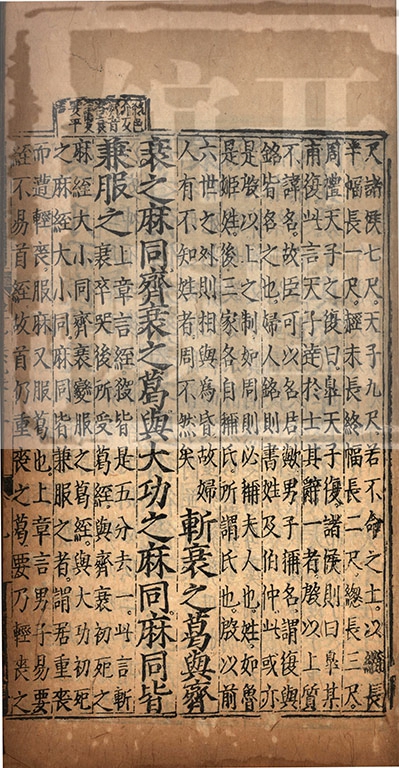 尺諸侯七尺天子九尺若不命之士以緇長
半幅長一尺經末長終幅長二尺緫長三尺
周禮天子之復曰臯天子復諸侯則曰臯某
甫復此言天子達於士其辭一者殷以上質
不諱名故臣可以名君歟男子稱名謂復與
銘皆名之也婦人銘則書姓及伯仲此或亦
是殷以上之制如周則必稱夫人也姓如魯
是姬姓後三家各自稱氏所謂氏也殷以前
六世之外則相與為昏故婦
人有不知姓者周不然矣
斬衰之葛與齊
衰之麻同齊衰之葛與大功之麻同麻同皆
兼服之
上章言絰殺皆是五分去一此言斬
衰卒哭後所受葛絰與齊衰初死之
麻絰大小同齊衰變服之葛絰與大功初死
之麻絰大小同麻同皆兼服之者謂居重喪
而遭輕喪服麻又服葛也上章言男子易要
絰不易首絰故首仍重喪之葛要乃輕喪之